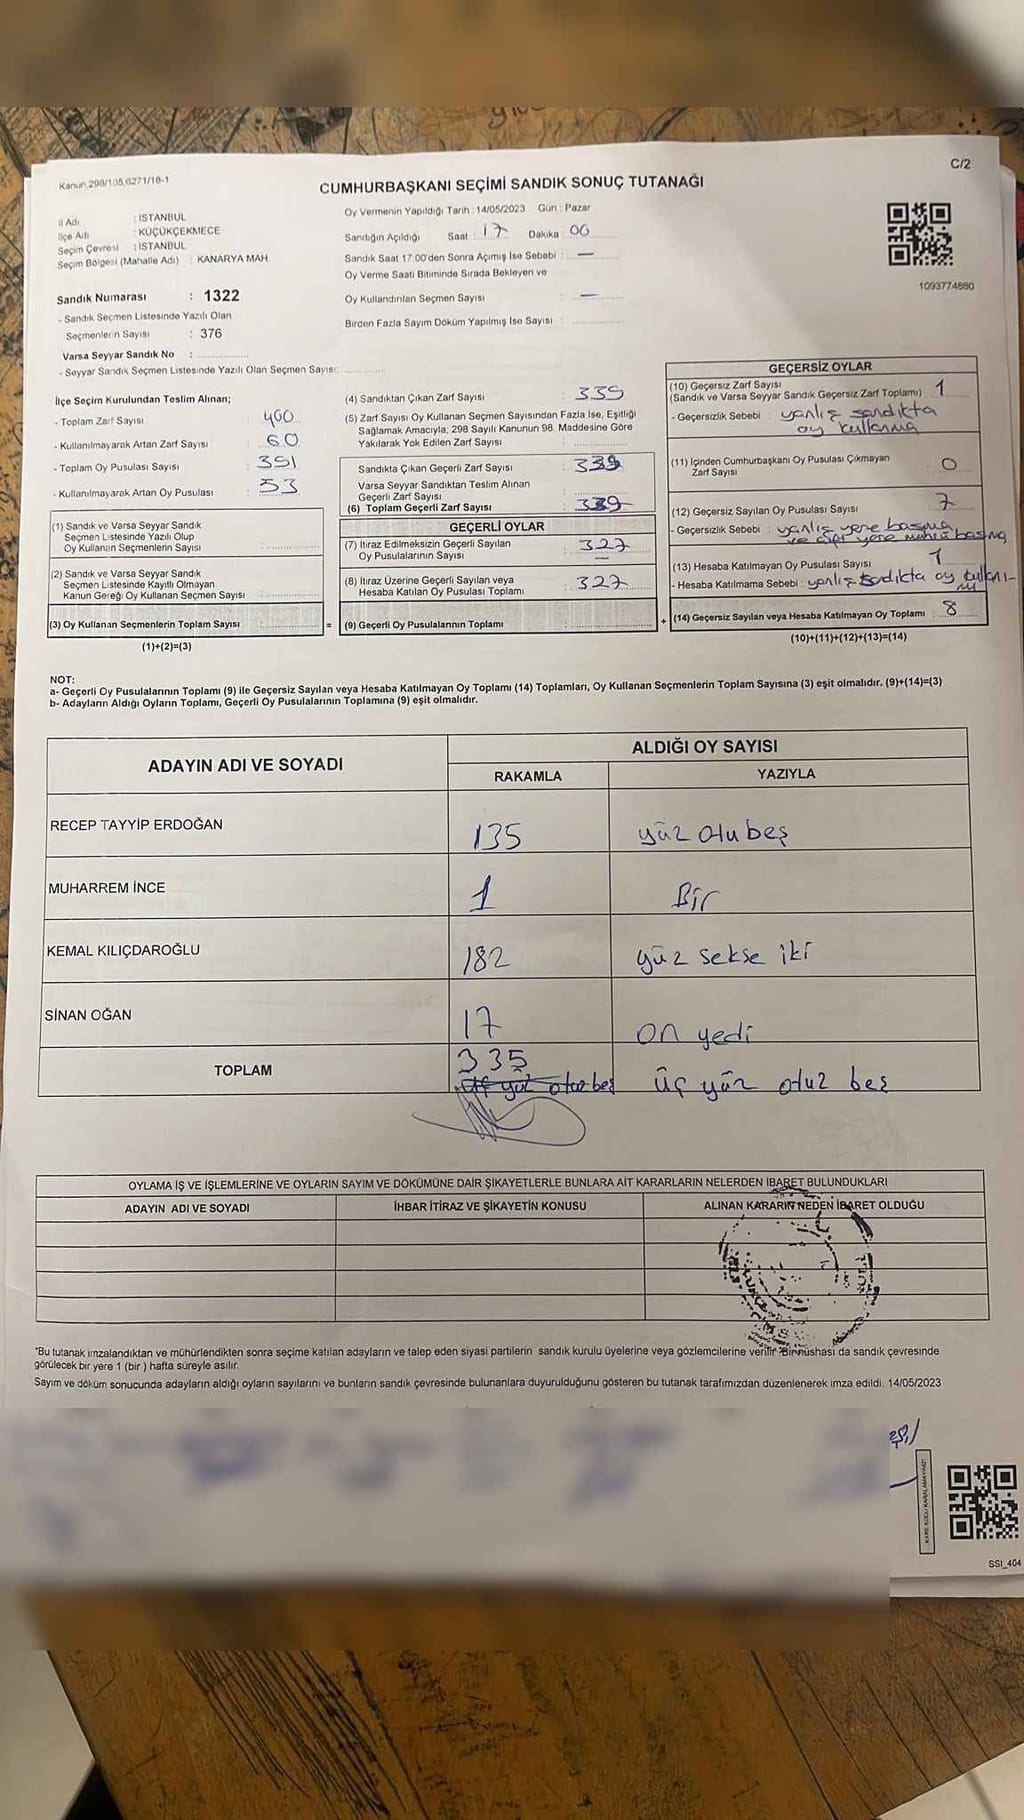 C/2
Kanun,298/105,6271/18-1
CUMHURBAŞKANI SEÇİMİ SANDIK SONUÇ TUTANAĞI
İl Adı : İSTANBUL
İlçe Adı : KÜÇÜKÇEKMECE
Seçim Çevresi : İSTANBUL
Seçim Bölgesi (Mahalle Adı) : KANARYA MAH.
Sandık Numarası : 1322
- Sandık Seçmen Listesinde Yazılı Olan
Seçmenlerin Sayısı : 376
Varsa Seyyar Sandık No :
- Seyyar Sandık Seçmen Listesinde Yazılı Olan Seçmen Sayısı:
Oy Vermenin Yapıldığı Tarih : 14/05/2023 Gün : Pazar
Sandığın Açıldığı Saat : 17 Dakika : 06
Sandık Saat 17:00'den Sonra Açımış İse Sebebi : —
Oy Verme Saati Bitiminde Sırada Bekleyen ve
Oy Kullandırılan Seçmen Sayısı : —
Birden Fazla Sayım Döküm Yapılmış İse Sayısı :
1093774880
İlçe Seçim Kurulundan Teslim Alınan;
- Toplam Zarf Sayısı : 400
- Kullanılmayarak Artan Zarf Sayısı : 60
- Toplam Oy Pusulası Sayısı : 391
- Kullanılmayarak Artan Oy Pusulası : 53
(1) Sandık ve Varsa Seyyar Sandık
Seçmen Listesinde Yazılı Olup
Oy Kullanan Seçmenlerin Sayısı :
(2) Sandık ve Varsa Seyyar Sandık
Seçmen Listesinde Kayıtlı Olmayan
Kanun Gereği Oy Kullanan Seçmen Sayısı :
(3) Oy Kullanan Seçmenlerin Toplam Sayısı : =
(1)+(2)=(3)
(4) Sandıktan Çıkan Zarf Sayısı : 339
(5) Zarf Sayısı Oy Kullanan Seçmen Sayısından Fazla İse, Eşitliği
Sağlamak Amacıyla; 298 Sayılı Kanunun 98. Maddesine Göre
Yakılarak Yok Edilen Zarf Sayısı :
Sandıkta Çıkan Geçerli Zarf Sayısı : 339
Varsa Seyyar Sandıktan Teslim Alınan
Geçerli Zarf Sayısı :
(6) Toplam Geçerli Zarf Sayısı : 339
GEÇERLİ OYLAR
(7) İtiraz Edilmeksizin Geçerli Sayılan
Oy Pusulalarının Sayısı : 327
(8) İtiraz Üzerine Geçerli Sayılan veya
Hesaba Katılan Oy Pusulası Toplamı : 327
(9) Geçerli Oy Pusulalarının Toplamı : +
GEÇERSİZ OYLAR
(10) Geçersiz Zarf Sayısı
(Sandık ve Varsa Seyyar Sandık Geçersiz Zarf Toplamı) : 1
- Geçersizlik Sebebi : yanlış sandıkta
oy kullanma
(11) İçinden Cumhurbaşkanı Oy Pusulası Çıkmayan
Zarf Sayısı : 0
(12) Geçersiz Sayılan Oy Pusulası Sayısı : 7
- Geçersizlik Sebebi : yanlış yere basma
ve yere mührü basma
(13) Hesaba Katılmayan Oy Pusulası Sayısı : 1
- Hesaba Katılmama Sebebi : yanlış sandıkta oy
(14) Geçersiz Sayılan veya Hesaba Katılmayan Oy Toplamı : 8
(10)+(11)+(12)+(13)=(14)
NOT:
a- Geçerli Oy Pusulalarının Toplamı (9) ile Geçersiz Sayılan veya Hesaba Katılmayan Oy Toplamı (14) Toplamları, Oy Kullanan Seçmenlerin Toplam Sayısına (3) eşit olmalıdır. (9)+(14)=(3)
b- Adayların Aldığı Oyların Toplamı, Geçerli Oy Pusulalarının Toplamına (9) eşit olmalıdır.
ADAYIN ADI VE SOYADI
ALDIĞI OY SAYISI
RAKAMLA YAZIYLA
RECEP TAYYİP ERDOĞAN 135 yüz otu beş
MUHARREM İNCE 1 Bir
KEMAL KILIÇDAROĞLU 182 yüz sekse iki
SİNAN OĞAN 17 on yedi
TOPLAM 335 üç yüz otuz beş üç yüz otuz beş
OYLAMA İŞ VE İŞLEMLERİNE VE OYLARIN SAYIM VE DÖKÜMÜNE DAİR ŞİKAYETLERLE BUNLARA AİT KARARLARIN NELERDEN İBARET BULUNDUKLARI
ADAYIN ADI VE SOYADI İHBAR İTİRAZ VE ŞİKAYETİN KONUSU ALINAN KARARIN NEDEN İBARET OLDUĞU
*Bu tutanak imzalandıktan ve mühürlendikten sonra seçime katılan adayların ve talep eden siyasi partilerin sandık kurulu üyelerine veya gözlemcilerine verilir. Bir nüshası da sandık çevresinde
görülecek bir yere 1 (bir ) hafta süreyle asılır.
Sayım ve döküm sonucunda adayların aldığı oyların sayılarını ve bunların sandık çevresinde bulunanlara duyurulduğunu gösteren bu tutanak tarafımızdan düzenlenerek imza edildi. 14/05/2023
KARE KODU KARALAMAYINIZ!
SSI_404